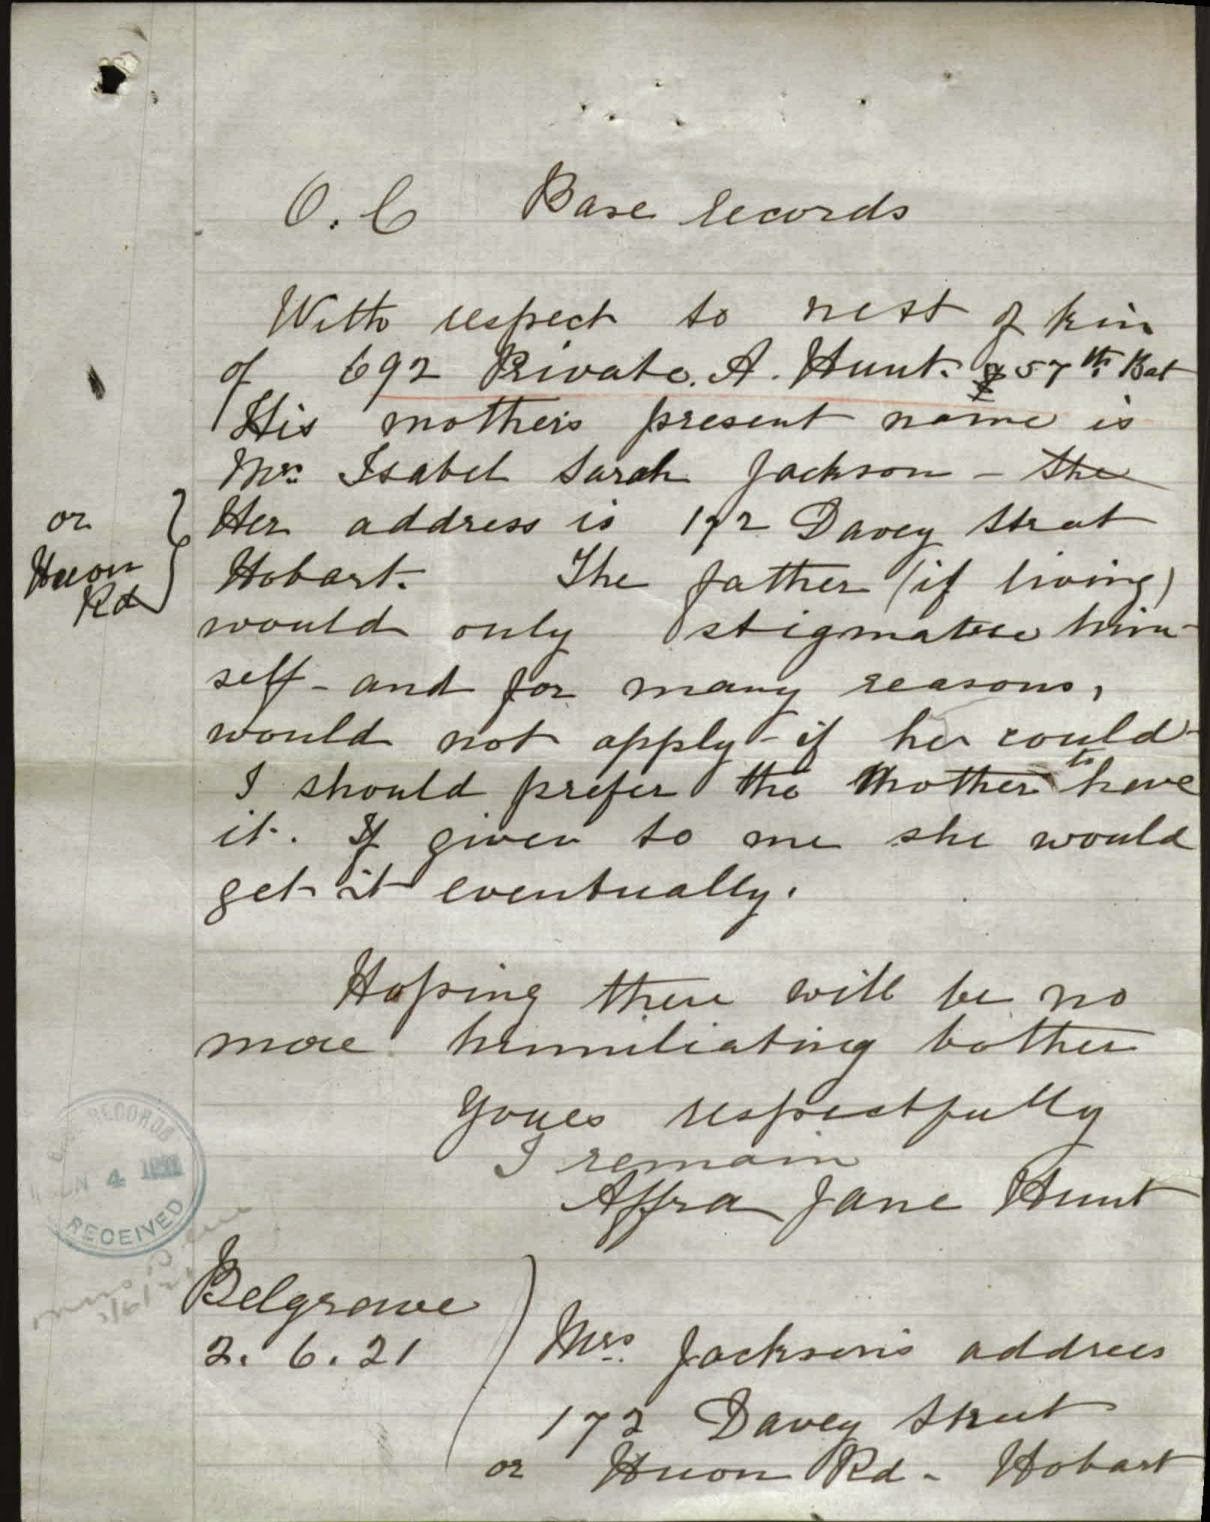 O. C Base records
With respect to next of kin
of 692 Private. A. Hunt. 57th Bat
His mother's present name is
Mrs Isabel Sarah Jackson - She
or
Huon
Rd
Her address is 172 Davey Street
Hobart. The father (if living)
would only stigmatise him-
self - and for many reasons,
would not apply - if he could -
I should prefer the Mother to have
it. If given to me she would
get it eventually.
Hoping there will be no
more humiliating bother
Yours respectfully
I remain
Affra Jane Hunt
RECORDS
4
RECEIVED
Belgrave
2. 6. 21
Mrs Jackson's address
172 Davey Street
or Huon Rd - Hobart